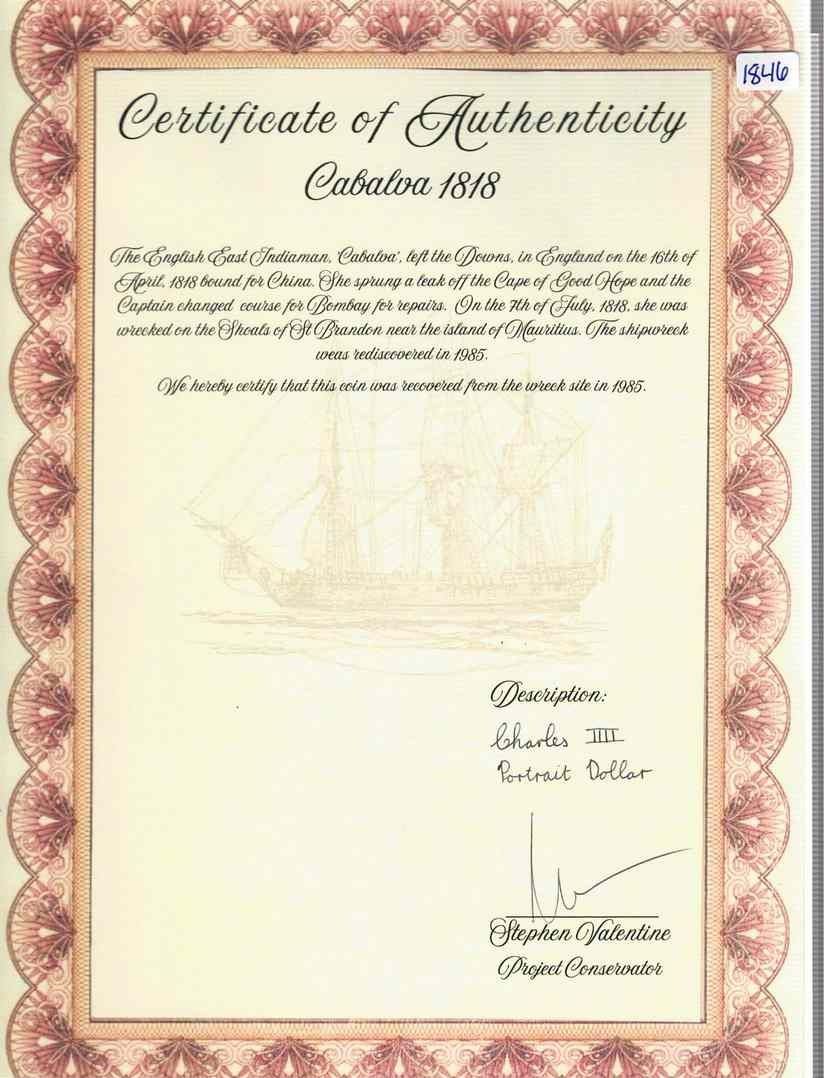 1846
Certificate of Authenticity
Cabalva 1818
The English East Indiaman, 'Cabalva', left the Downs, in England on the 16th of
April, 1818 bound for China. She sprung a leak off the Cape of Good Hope and the
Captain changed course for Bombay for repairs. On the 7th of July, 1818, she was
wrecked on the Shoals of St Brandon near the island of Mauritius. The shipwreck
weas rediscovered in 1985.
We hereby certify that this coin was recovered from the wreck site in 1985.
Description:
Charles IIII
Portrait Dollar
Stephen Valentine
Project Conservator